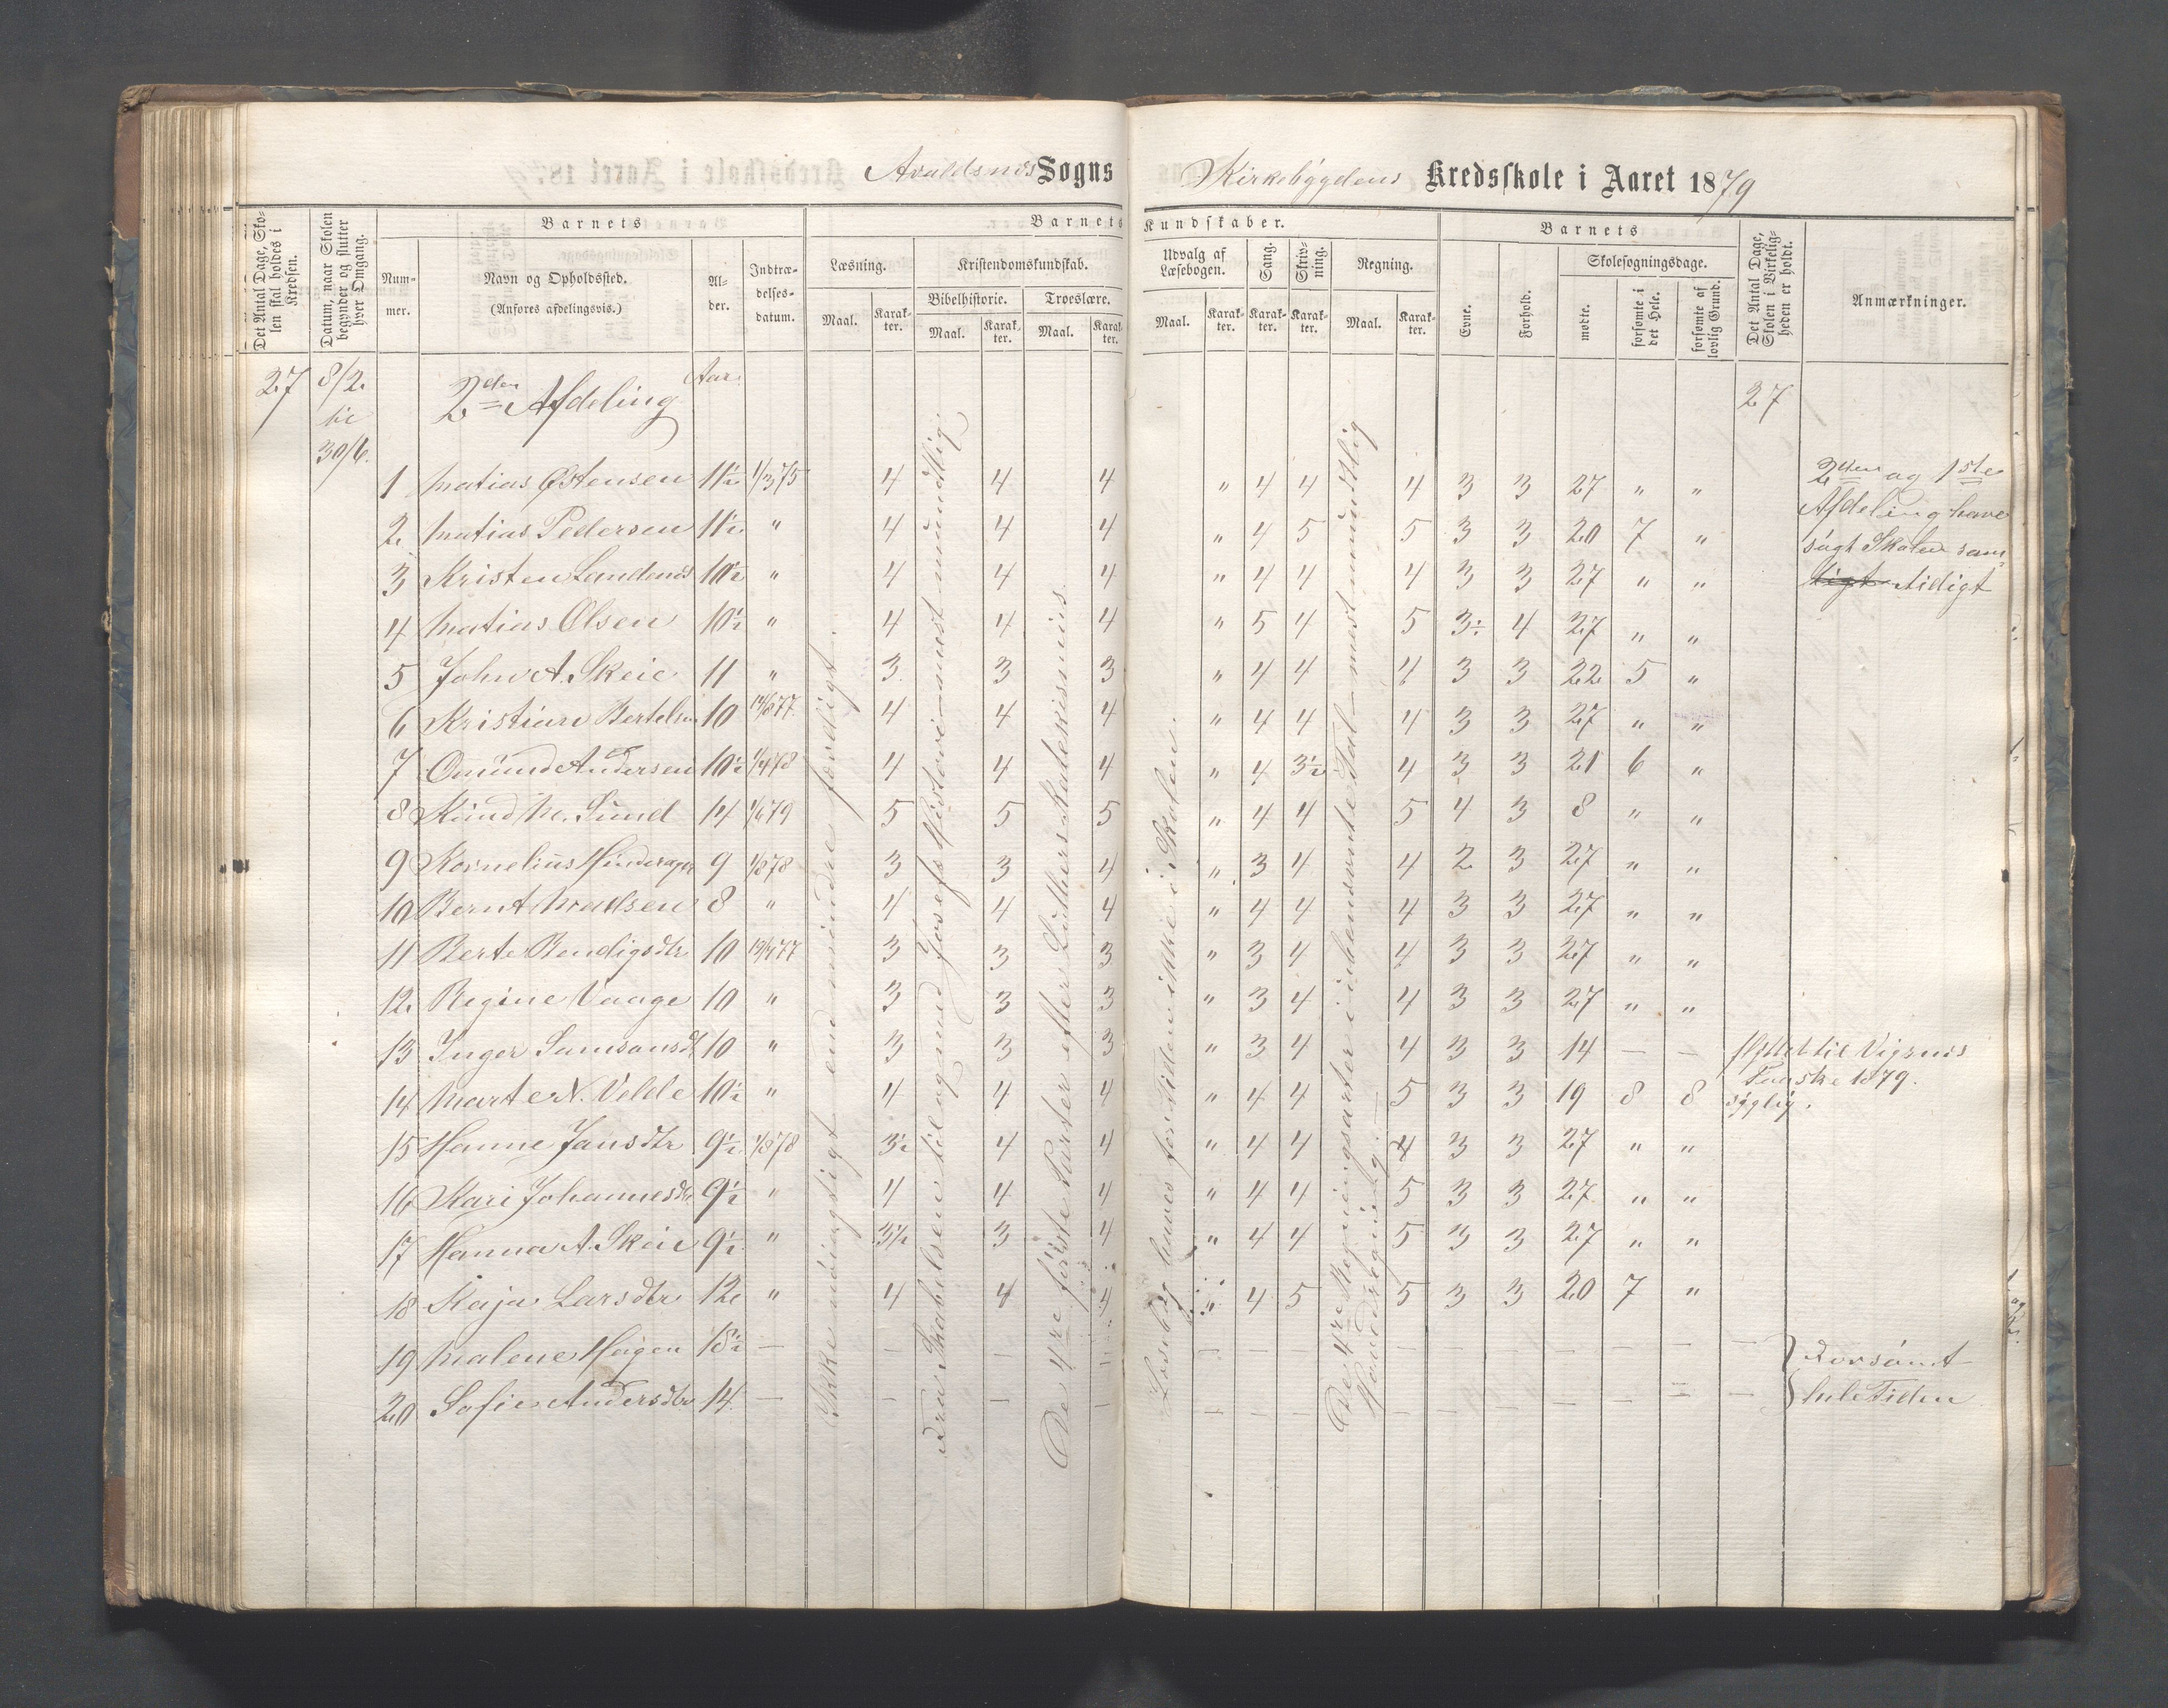 Avaldsnes Sogns Kirkebÿgdens Kredsskole i Aaret 1879
Det Antal Dage, Skolen skal holdes i Kredsen.
Datum, naar Skolen begynder og slutter hver Omgang.
Barnets
Nummer.
Navn og Opholdssted.
(Anføres afdelingsvis.)
Alder.
Indtrædelsesdatum.
Barnets Kundskaber.
Læsning.
Maal. Karakter.
Kristendomskundskab.
Bibelhistorie.
Maal. Karakter.
Troeslære.
Maal. Karakter.
Udvalg af Læsebogen.
Maal. Karakter.
Sang.
Karakter.
Skrivning.
Karakter.
Regning.
Maal. Karakter.
Barnets
Evne.
Forhold.
Skolesøgningsdage.
mødte.
forsømte i det Hele.
forsømte af lovlig Grund.
Det Antal Dage, Skolen i Virkeligheden er holdt.
Anmærkninger.
27 8/2 til 30/6. 2den Afdeling Aar. 27
1 Matias Østensen 11½ 1/3 75 4 4 4 " 4 4 4 3 3 27 " "
2 Matias Pedersen 11½ " 4 4 4 " 4 5 5 3 3 20 7 "
3 Kristen Landenes 10½ " 4 4 4 " 4 4 4 3 3 27 " "
4 Matias Olsen 10½ " 4 4 4 " 5 4 5 3÷ 4 27 " "
5 John A. Skeie 11 " 3 3 3 " 4 4 4 3 3 22 5 "
6 Kristian Bertelsen 10 77 4 4 4 " 4 4 4 3 3 27 " "
7 Omund Andersen 10½ 1/4 78 4 4 4 " 4 3½ 4 3 3 21 6 "
8 Knud M. Sund 14 1/6 79 5 5 5 " 4 4 5 4 3 8 " "
9 Kornelius 9 1/8 78 3 3 4 " 3 4 4 2 3 27 " "
10 Bernt Madsen 8 " 4 4 4 " 4 4 4 3 3 27 " "
11 Berte Bendigsdtr 10 77 3 3 3 " 3 4 4 3 3 27 " "
12 Regine Vaage 10 " 3 3 3 " 3 4 4 3 3 27 " "
13 Inger Samsonsdt 10 " 3 3 3 " 3 4 4 3 3 14 — — flyttet til Vigsnes Paaske 1879.
14 Marte N. Velde 10½ " 4 4 4 " 4 4 5 3 3 19 8 8 sÿglig.
15 Hanne Jansdtr 9½ 1/8 78 3½ 4 4 " 4 4 4 3 3 27 " "
16 Kari Johannesdtr 9½ " 4 4 4 " 4 4 5 3 3 27 " "
17 Hanna A. Skeie 9½ " 3½ 3 4 " 4 4 5 3 3 27 " "
18 Kaja Larsdtr 12 " 4 4 4 " 4 5 5 3 3 20 7 "
19 Malene Høigen 13½ — — — — — — — — — — — — — —
20 Sofie Andersdtr 14 — — — — — — — — — — — — — —
Ikke nöiagtigt end mindre færdigt.
Fra Skabelsen til og med Josefs Historie — mest mundtlig.
De 4re förste Parter efter Luthers Katekismus.
Læsebog haves for Tiden ikke i Skolen.
De 4re Regningsarter i ubenævnte Tal — mest mundtlig
Hovedregning. —
2den og 1ste
Afdeling have
sögt Skolen sam-
tidigt
Forsömt
hele Tiden